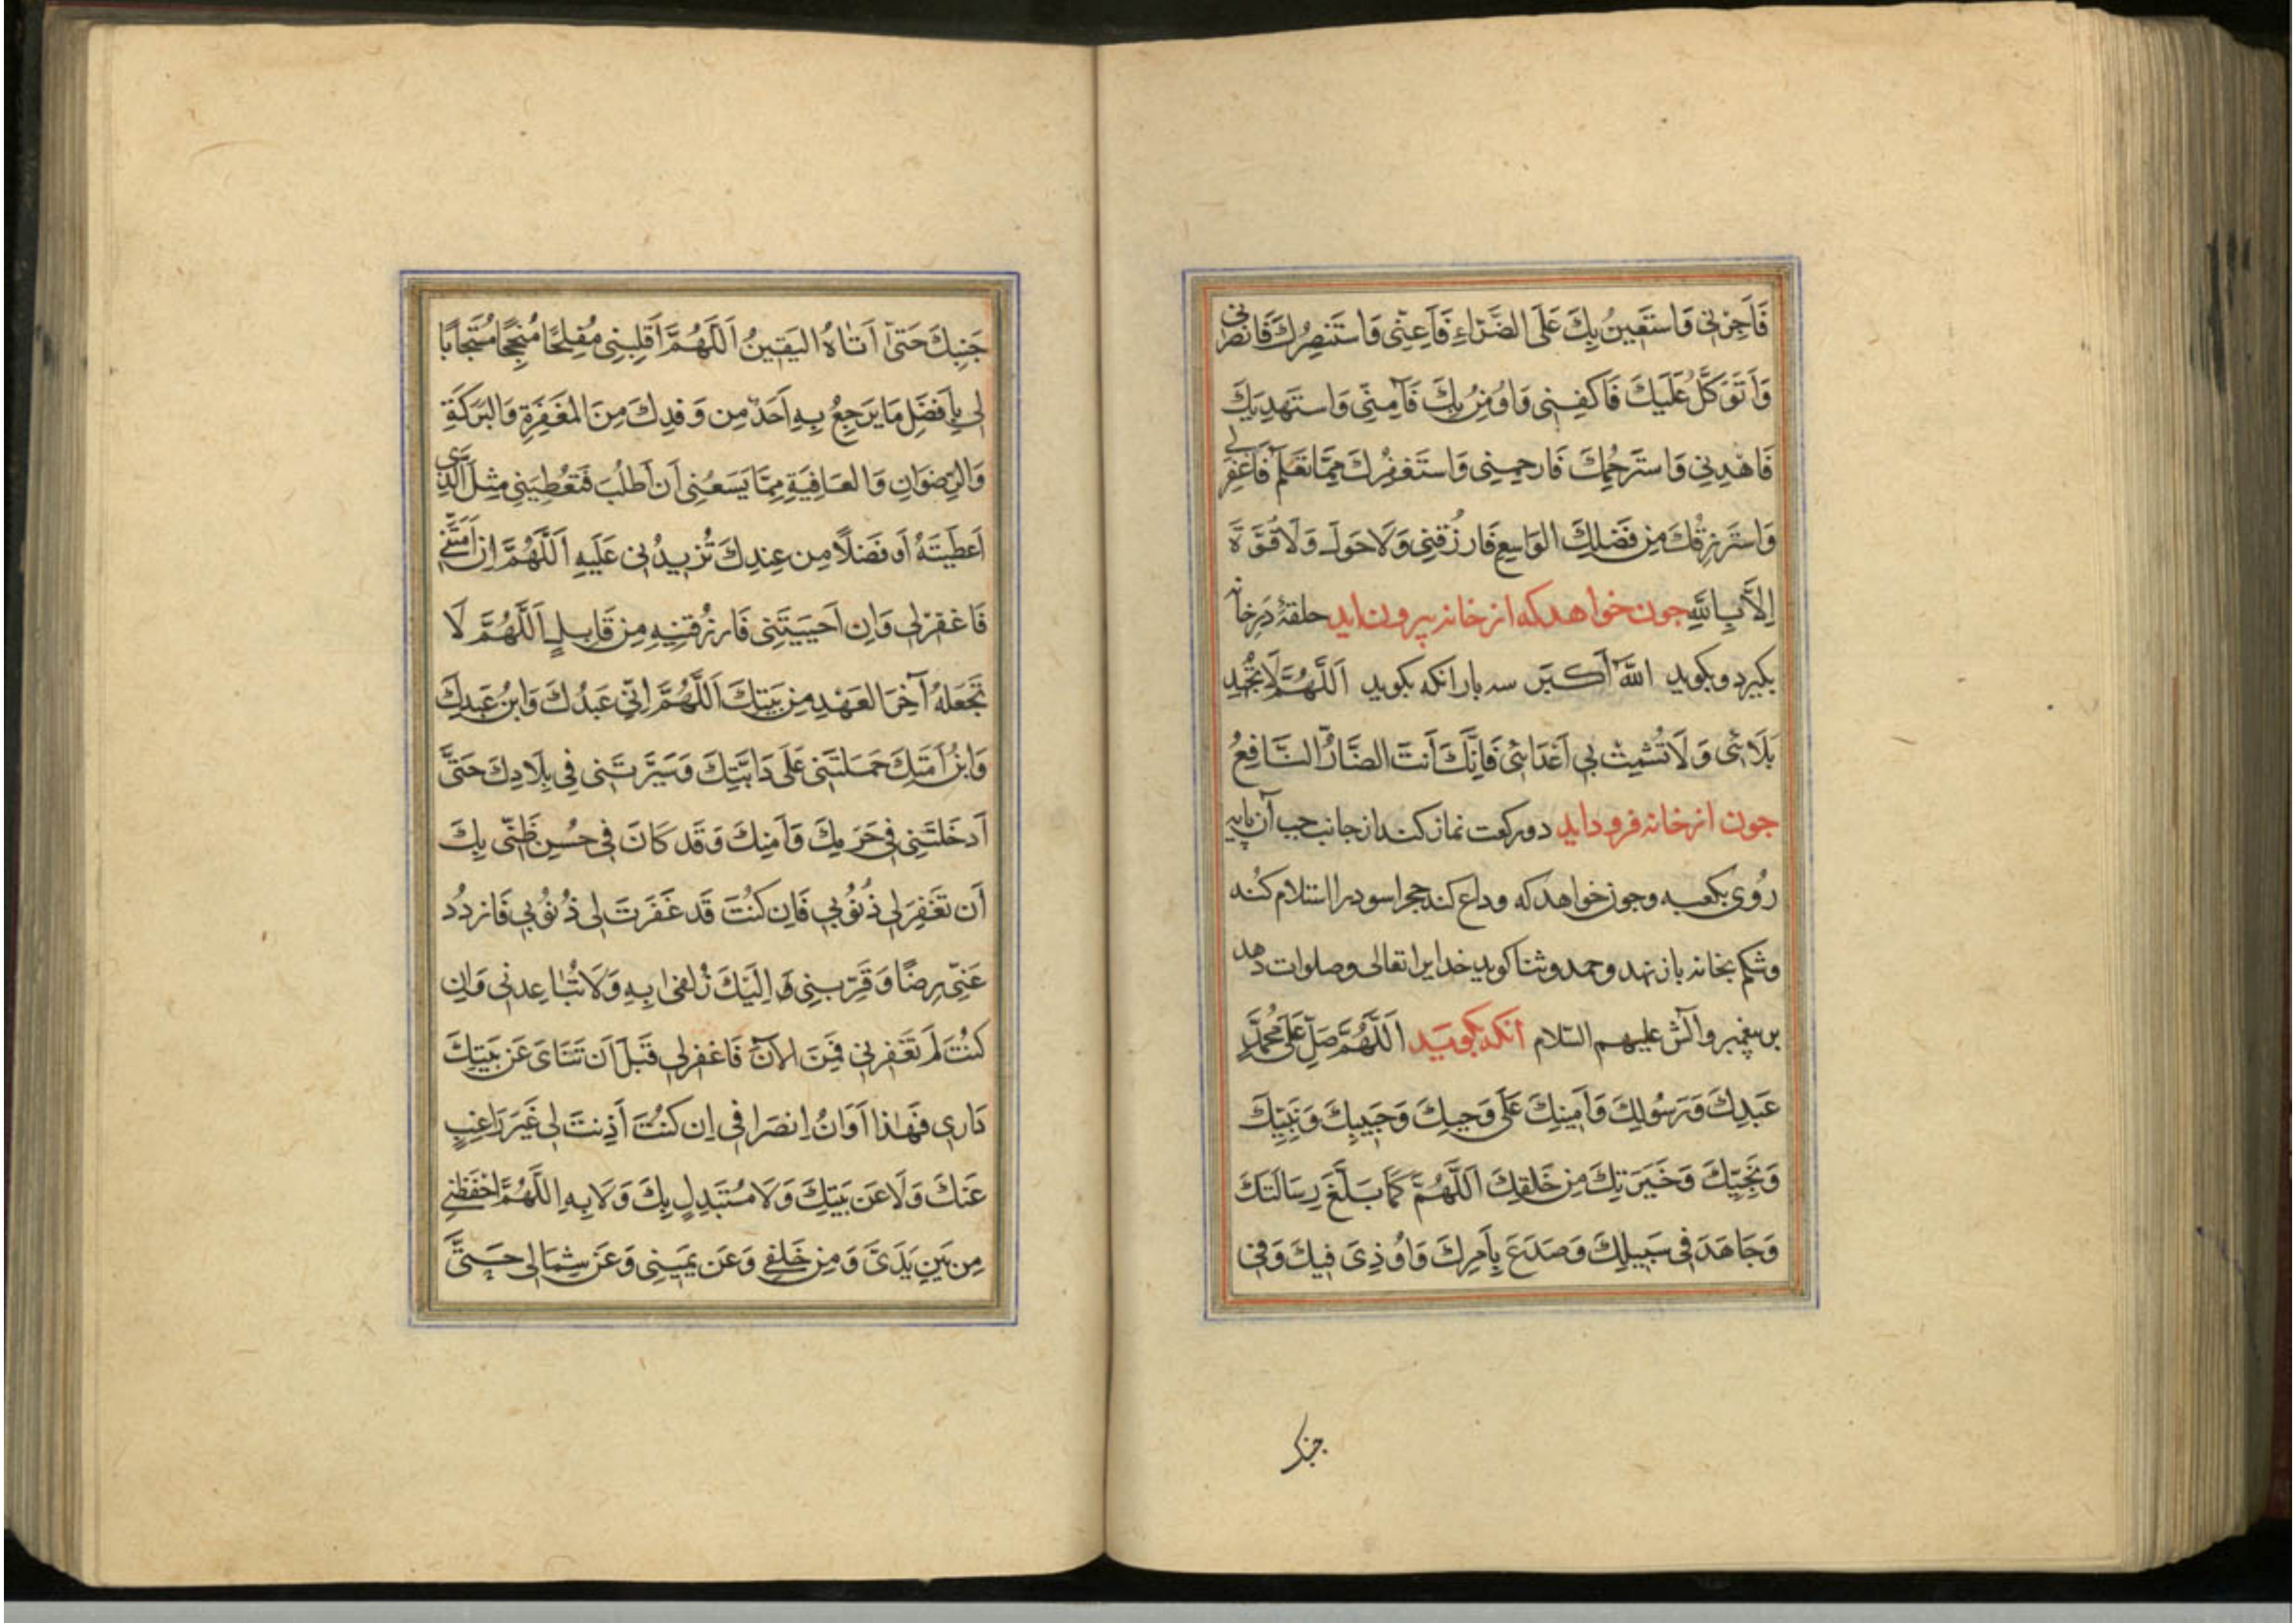 فَاَجِرْنِی وَاستَعِينُ بِكَ عَلَی الضَّرّاءِ فَاَعِنِّی وَاستَنصِرُكَ فَانصُرنِی
وَاَتَوَكَّلُ عَلَيكَ فَاكفِنِی وَاُومِنُ بِكَ فَآمِنِّی وَاستَهدِيكَ
فَاهدِنِی وَاستَرحِمُكَ فَارحَمِنِی وَاستَغفِرُكَ مِمَّا تَعلَم فَاغفِرلِی
وَاستَرزِقُكَ مِن فَضلِكَ الوَاسِعِ فَارزُقنِی وَلَا حَولَ وَلَا قُوَّةَ
اِلَّا بِاللهِ جون خواهد که از خانه بیرون اید حلقۀ دَر خانه
بکیرد و بکوید اللهُ اَکبَر سه بار انکه بکوید اَللّٰهُمَّ لَا تُجهِد
بَلَائِی وَلَا تُشمِتْ بِی اَعْدَائِی فَاِنَّكَ اَنتَ الضَّارُّ النَّافِعُ
جون از خانه فرود اید دو رکعت نماز کند از جانب جب آن پایه
رُوی بکعبه و جون خواهد که وداع کند حجر اسود را استلام کُند
و شکم بخانه باز نهد و حمد و ثنا کوید خدایرا تعالی و صلوات دهد
بر پیغمبر و آلش علیهم السّلام انکه بکوید اَللّٰهُمَّ صَلِّ عَلی مُحَمَّدٍ
عَبدِكَ وَرَسُولِكَ وَاَمِينِكَ عَلَی وَحيِكَ وَحَبِيبِكَ وَنَبِيِّكَ
وَنَجِيِّكَ وَخَيَرَتِكَ مِن خَلقِكَ اَللّٰهُمَّ كَمَا بَلَّغَ رِسَالَتَكَ
وَجَاهَدَ فِی سَبِيلِكَ وَصَدَعَ بِاَمرِكَ وَاُوذِیَ فِيكَ وَفِی
جنبک
جَنبِكَ حَتّیٰ اَتَاهُ اليَقِينُ اَللّٰهُمَّ اَقلِبنِی مُفلِحًا مُنجِحًا مُستَجَابًا
لِی بِاَفضَلِ مَا يَرجِعُ بِهِ اَحَدٌ مِن وَفدِكَ مِنَ المَغفِرَةِ وَالبَرَكَةِ
وَالرِّضوَانِ وَالعَافِيَةِ مِمَّا يَسَعُنِی اَن اَطلُبَ فَتُعطِيَنِی مِثلَ الَّذِی
اَعطَيتَهُ اَو فَضلًا مِن عِندِكَ تُزِيدُنِی عَلَيهِ اَللّٰهُمَّ اِن اَمَتَّنِی
فَاغفِرلِی وَاِن اَحيَيتَنِی فَارزُقنِيهِ مِن قَابِلٍ اَللّٰهُمَّ لَا
تَجعَلهُ آخِرَ العَهدِ مِن بَيتِكَ اَللّٰهُمَّ اِنِّی عَبدُكَ وَابنُ عَبدِكَ
وَابنُ اَمَتِكَ حَمَلتَنِی عَلَی دَابَّتِكَ وَسَيَّرتَنِی فِی بِلَادِكَ حَتَّی
اَدخَلتَنِی فِی حَرَمِكَ وَاَمنِكَ وَقَد كَانَ فِی حُسنِ ظَنِّی بِكَ
اَن تَغفِرَلِی ذُنُوبِی فَاِن كُنتَ قَد غَفَرتَ لِی ذُنُوبِی فَازدَد
عَنِّی رِضًا وَقَرِّبنِی وَاِلَيكَ زُلفٰی بِهِ وَلَا تُبَاعِدنِی وَاِن
كُنتَ لَم تَغفِرلِی فَمِنَ الآنَ فَاغفِرلِی قَبلَ اَن تَنَایَ عَن بَيتِكَ
دَارِی فَهٰذَا اَوَانُ اِنصِرَافِی اِن كُنتَ اَذِنتَ لِی غَيرَ رَاغِبٍ
عَنكَ وَلَا عَن بَيتِكَ وَلَا مُستَبدِلٍ بِكَ وَلَا بِهِ اَللّٰهُمَّ احفَظنِی
مِن بَينِ يَدَیَّ وَمِن خَلفِی وَعَن يَمِينِی وَعَن شِمَالِی حَتَّی